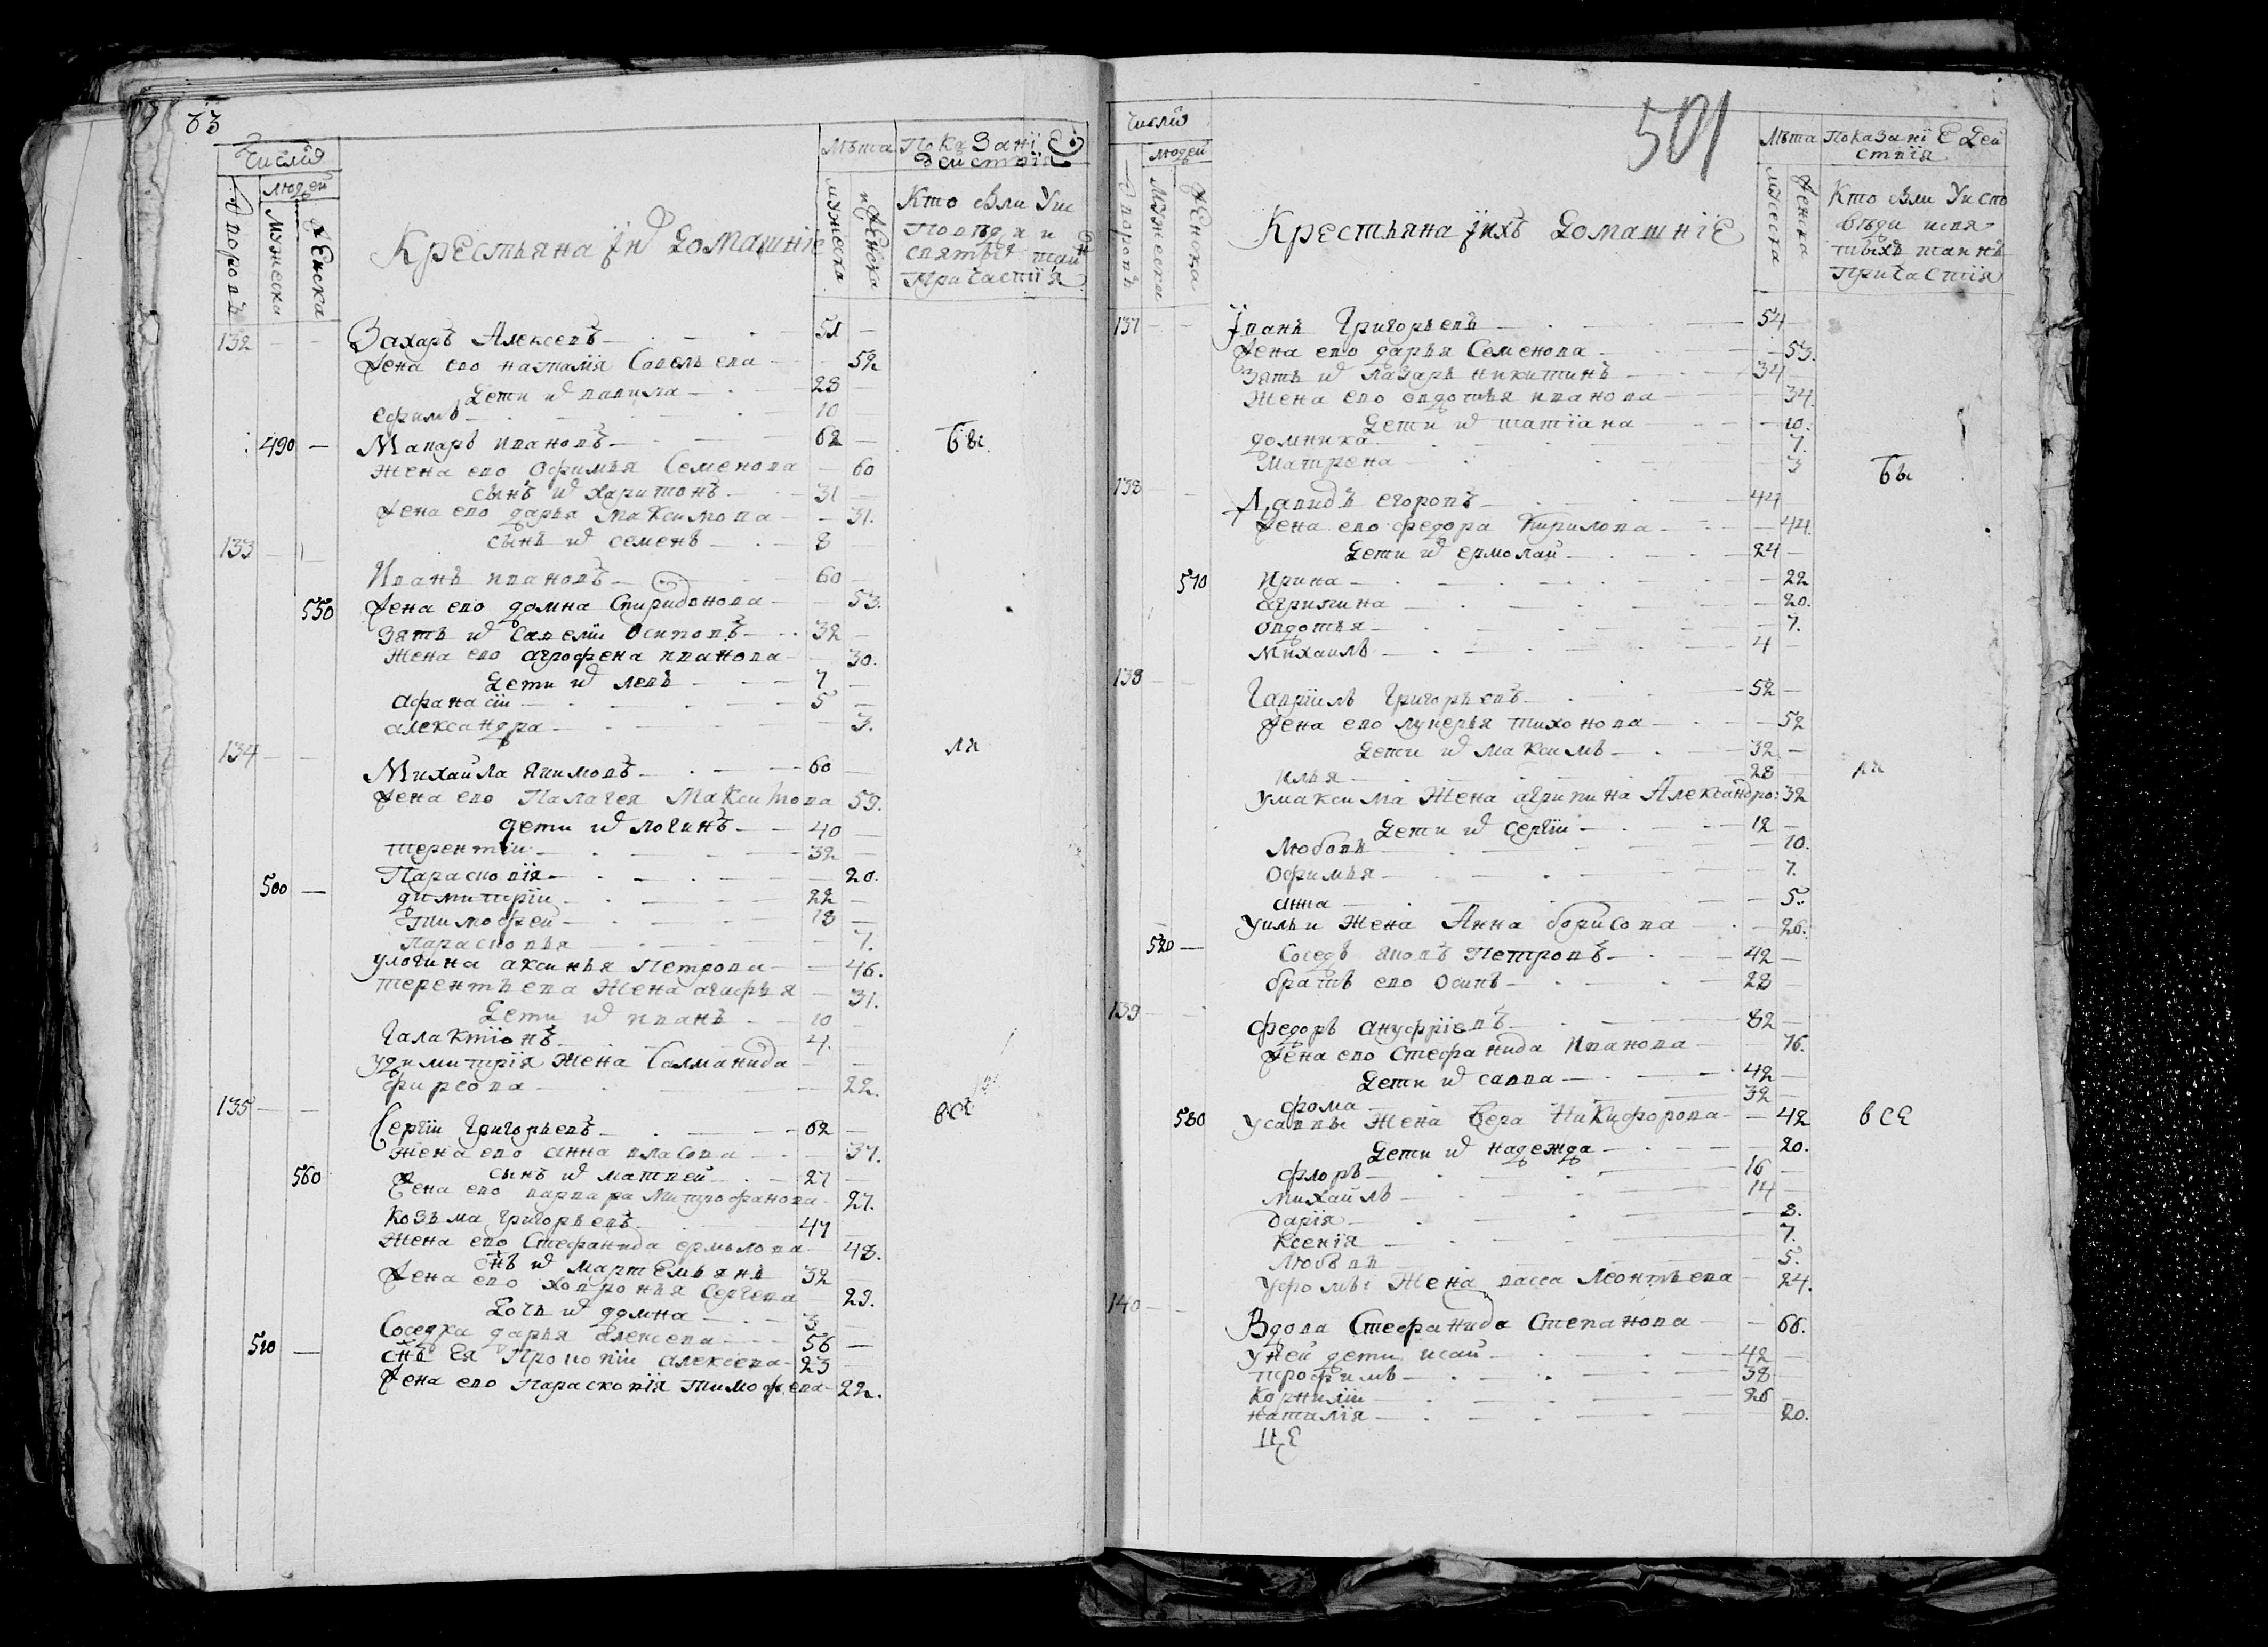 63
Числа
людей
дворовъ
мужеска
женска
Крестьяна их домашние
Лѣта
мужеска
женска
Показаніе действія
Кто были у ис
поведи и
святых таин
причастия
132 — — Захаръ Алексеевъ — 51 —
Жена ево наталія Савельева — 52
Дети их вавила — 28 —
ефимъ — 10
490 — Макаръ ивановъ — 62 — бы
Жена ево Офимья Семенова — 60
сынъ их харитонъ — 31 —
Жена ево дарья максимова — 31.
сынъ их семенъ — 8
133 — — Иванъ ивановъ — 60 —
550 Жена ево домна Спиридонова — 53.
зять их савелии Осиповъ — 32 —
Жена ево агрофена иванова — 30.
Дети их левъ — 7 —
Афанасіи — 5 —
александра — 3.
134 — — Михайла якимовъ — 60 — ли
Жена ево Палагея Максимова 59.
дети их логинъ — 40 —
терентіи — 32 —
500 — Парасковія — 20.
димитріи — 22 —
тимофеи — 18 —
парасковья — 7.
улогина аксинья Петрова — 46.
терентьева Жена агафья — 31.
Дети их иванъ — 10 —
Галактіонъ — 4.
удимитрія Жена Салманида
фирсова — 22.
135 — — Сергіи григорьевъ — 62 — все
Жена ево анна власова — 37.
560 сынъ их матвеи — 27 —
Жена ево варвара Митрофанова — 27.
Козьма григорьевъ — 47
Жена ево Стефанида ермылова — 48.
снъ их мартемьянъ 32 —
Жена ево ховронья Сергева — 29.
Дочь их домна — 3
Соседка дарья алексева — 56 —
510 — снъ ея Прокопіи алексева — 23 —
Жена ево Парасковія тимофева — 22.
501
Числа
людей
дворовъ
мужеска
женска
Крестьяна ихъ домашніе
Лѣта
мужеска
женска
Показаніе дей
ствія
Кто были у испо
вѣди и свя
тыхъ таинъ
причастія
137 — — Іванъ Григорьевъ — 54
Жена ево дарья Семенова — 53.
зять их лазарь никитинъ — 34
Жена ево овдотья иванова — 34.
Дети их татіана — 10.
домника — 7.
Матрена — 3 бы
138 — — Давидъ егоровъ — 44
Жена ево федора Кирилова — 44.
Дети их ермолаи — 24 —
570 Ирина — 22
агрипина — 20.
овдотья — 7.
Михаилъ — 4 —
138 — — Гавріилъ Григорьевъ — 52 —
Жена ево лукерья тихонова — 52
Дети их максимъ — 32 —
илья — 28 — ли
умаксима Жена агрипина Александро: 32
Дети их сергіи — 12 —
Любовь — 10.
Офимья — 7.
анна — 5.
уильи Жена Анна борисова — 26.
520 — Соседъ яковъ Петровъ — 42 —
братъ ево Осипъ — 28 —
139 — — федоръ ануфріевъ — 82 —
Жена ево стефанида Иванова — 76.
Дети их савва — 42 —
фома — 32 —
580 усаввы Жена вера Никифорова — 42 все
Дети их надежда — 20.
флоръ — 16 —
михаилъ — 14 —
дарія — 8.
Ксенія — 7.
Любовь — 5.
уфомы Жена васса Леонтьева — 24.
140 — — Вдова Стефанида Степанова — 66.
у ней дети исаи — 42 —
трофимъ — 38 —
Корниліи — 26
наталія — 20.